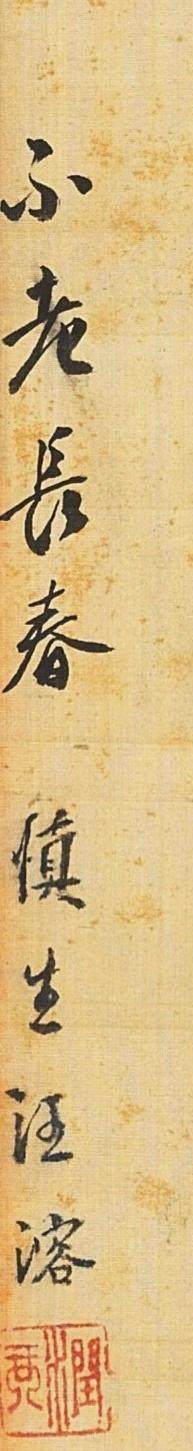 不老長春 慎生汪溶